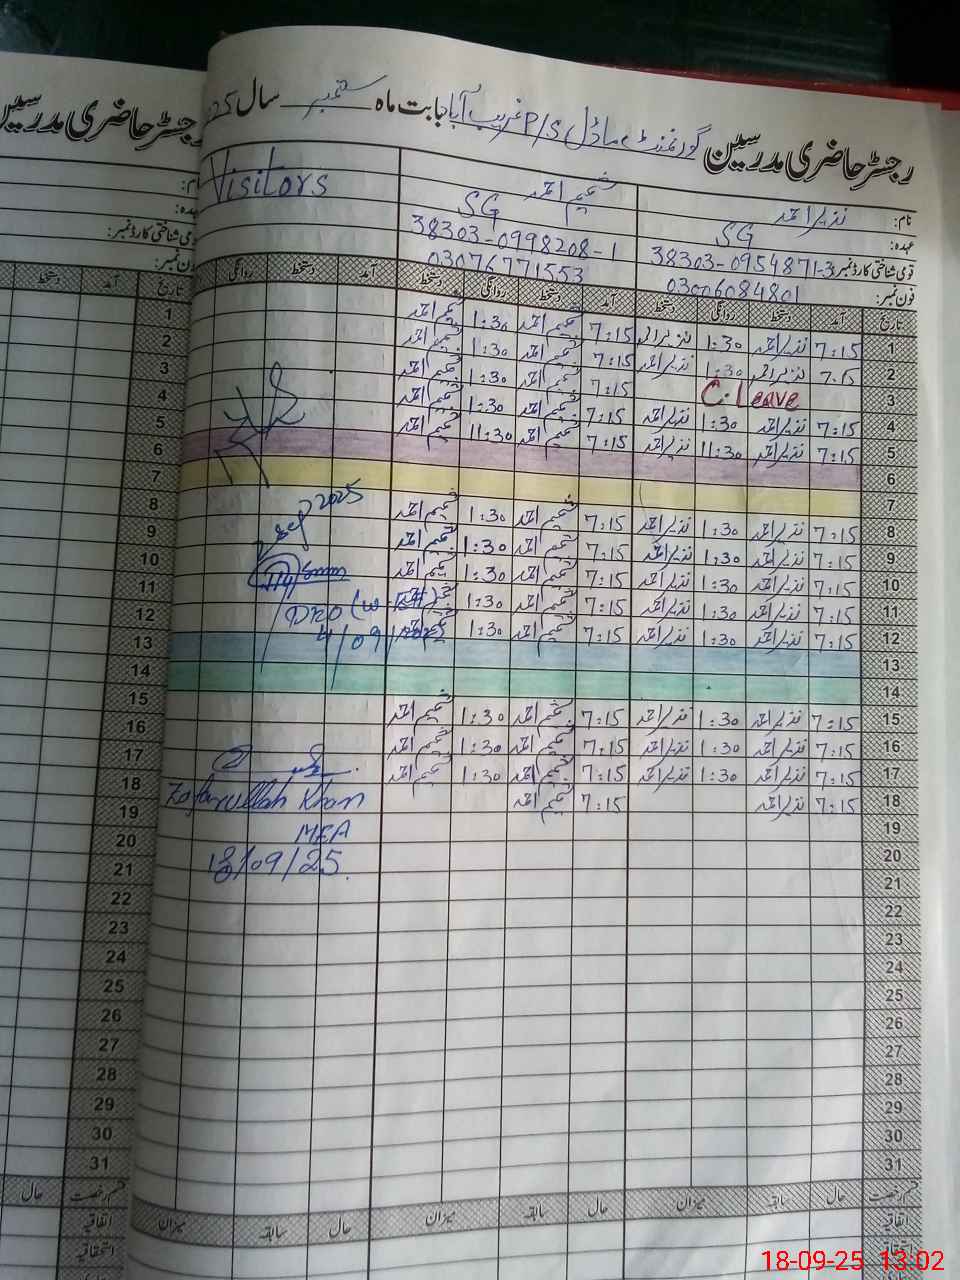 رجسٹر حاضری مدرسین گورنمنٹ ماڈل P/S غریب آباد بابت ماہ ستمبر سال 2025
رجسٹر حاضری مدرسین
نام: نذیر احمد شمیم احمد Visitors
عہدہ: SG SG
قومی شناختی کارڈ نمبر: 38303-0954871-3 38303-0998208-1
فون نمبر: 03006084801 03076771553
تاریخ آمد دستخط روانگی دستخط آمد دستخط روانگی دستخط آمد دستخط روانگی
1 7:15 نذیر احمد 1:30 نذیر احمد 7:15 شمیم احمد 1:30 شمیم احمد 1
2 7:15 نذیر احمد 1:30 نذیر احمد 7:15 شمیم احمد 1:30 شمیم احمد 2
3 C. Leave 7:15 شمیم احمد 1:30 شمیم احمد 3
4 7:15 نذیر احمد 1:30 نذیر احمد 7:15 شمیم احمد 1:30 شمیم احمد 4
5 7:15 نذیر احمد 11:30 نذیر احمد 7:15 شمیم احمد 11:30 شمیم احمد 5
6 6
7 7
8 7:15 نذیر احمد 1:30 نذیر احمد 7:15 شمیم احمد 1:30 شمیم احمد sep 2025 8
9 7:15 نذیر احمد 1:30 نذیر احمد 7:15 شمیم احمد 1:30 شمیم احمد 9
10 7:15 نذیر احمد 1:30 نذیر احمد 7:15 شمیم احمد 1:30 شمیم احمد 10
11 7:15 نذیر احمد 1:30 نذیر احمد 7:15 شمیم احمد 1:30 شمیم احمد 11
12 7:15 نذیر احمد 1:30 نذیر احمد 7:15 شمیم احمد 1:30 شمیم احمد 12
13 13
14 14
15 7:15 نذیر احمد 1:30 نذیر احمد 7:15 شمیم احمد 1:30 شمیم احمد 15
16 7:15 نذیر احمد 1:30 نذیر احمد 7:15 شمیم احمد 1:30 شمیم احمد 16
17 7:15 نذیر احمد 1:30 نذیر احمد 7:15 شمیم احمد 1:30 شمیم احمد 17
18 7:15 نذیر احمد 7:15 شمیم احمد Zafarullah Khan 18
19 MEA 19
20 18/09/25. 20
21 21
22 22
23 23
24 24
25 25
26 26
27 27
28 28
29 29
30 30
31 31
قسم رخصت حال سابقہ میزان حال سابقہ میزان حال سابقہ میزان قسم رخصت حال
اتفاقیہ اتفاقیہ
استحقاقیہ استحقاقیہ
18-09-25 13:02